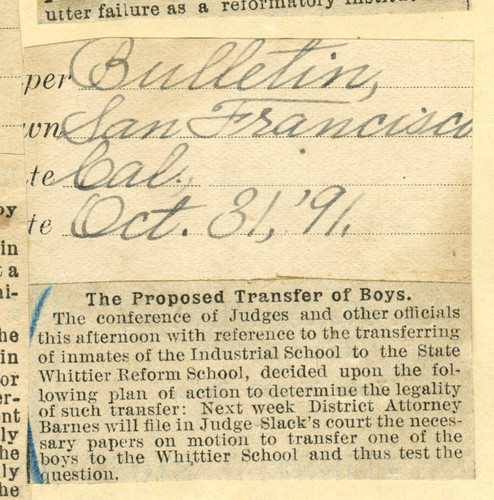 utter failure as a reformatory
per Bulletin,
wn San Francisco
te Cal.
te Oct. 31, '91.
The Proposed Transfer of Boys.
The conference of Judges and other officials
this afternoon with reference to the transferring
of inmates of the Industrial School to the State
Whittier Reform School, decided upon the fol-
lowing plan of action to determine the legality
of such transfer: Next week District Attorney
Barnes will file in Judge Slack's court the neces-
sary papers on motion to transfer one of the
boys to the Whittier School and thus test the
question.
oy
in
t a
ni-
he
in
or
er-
ent
ly
he
ly
he